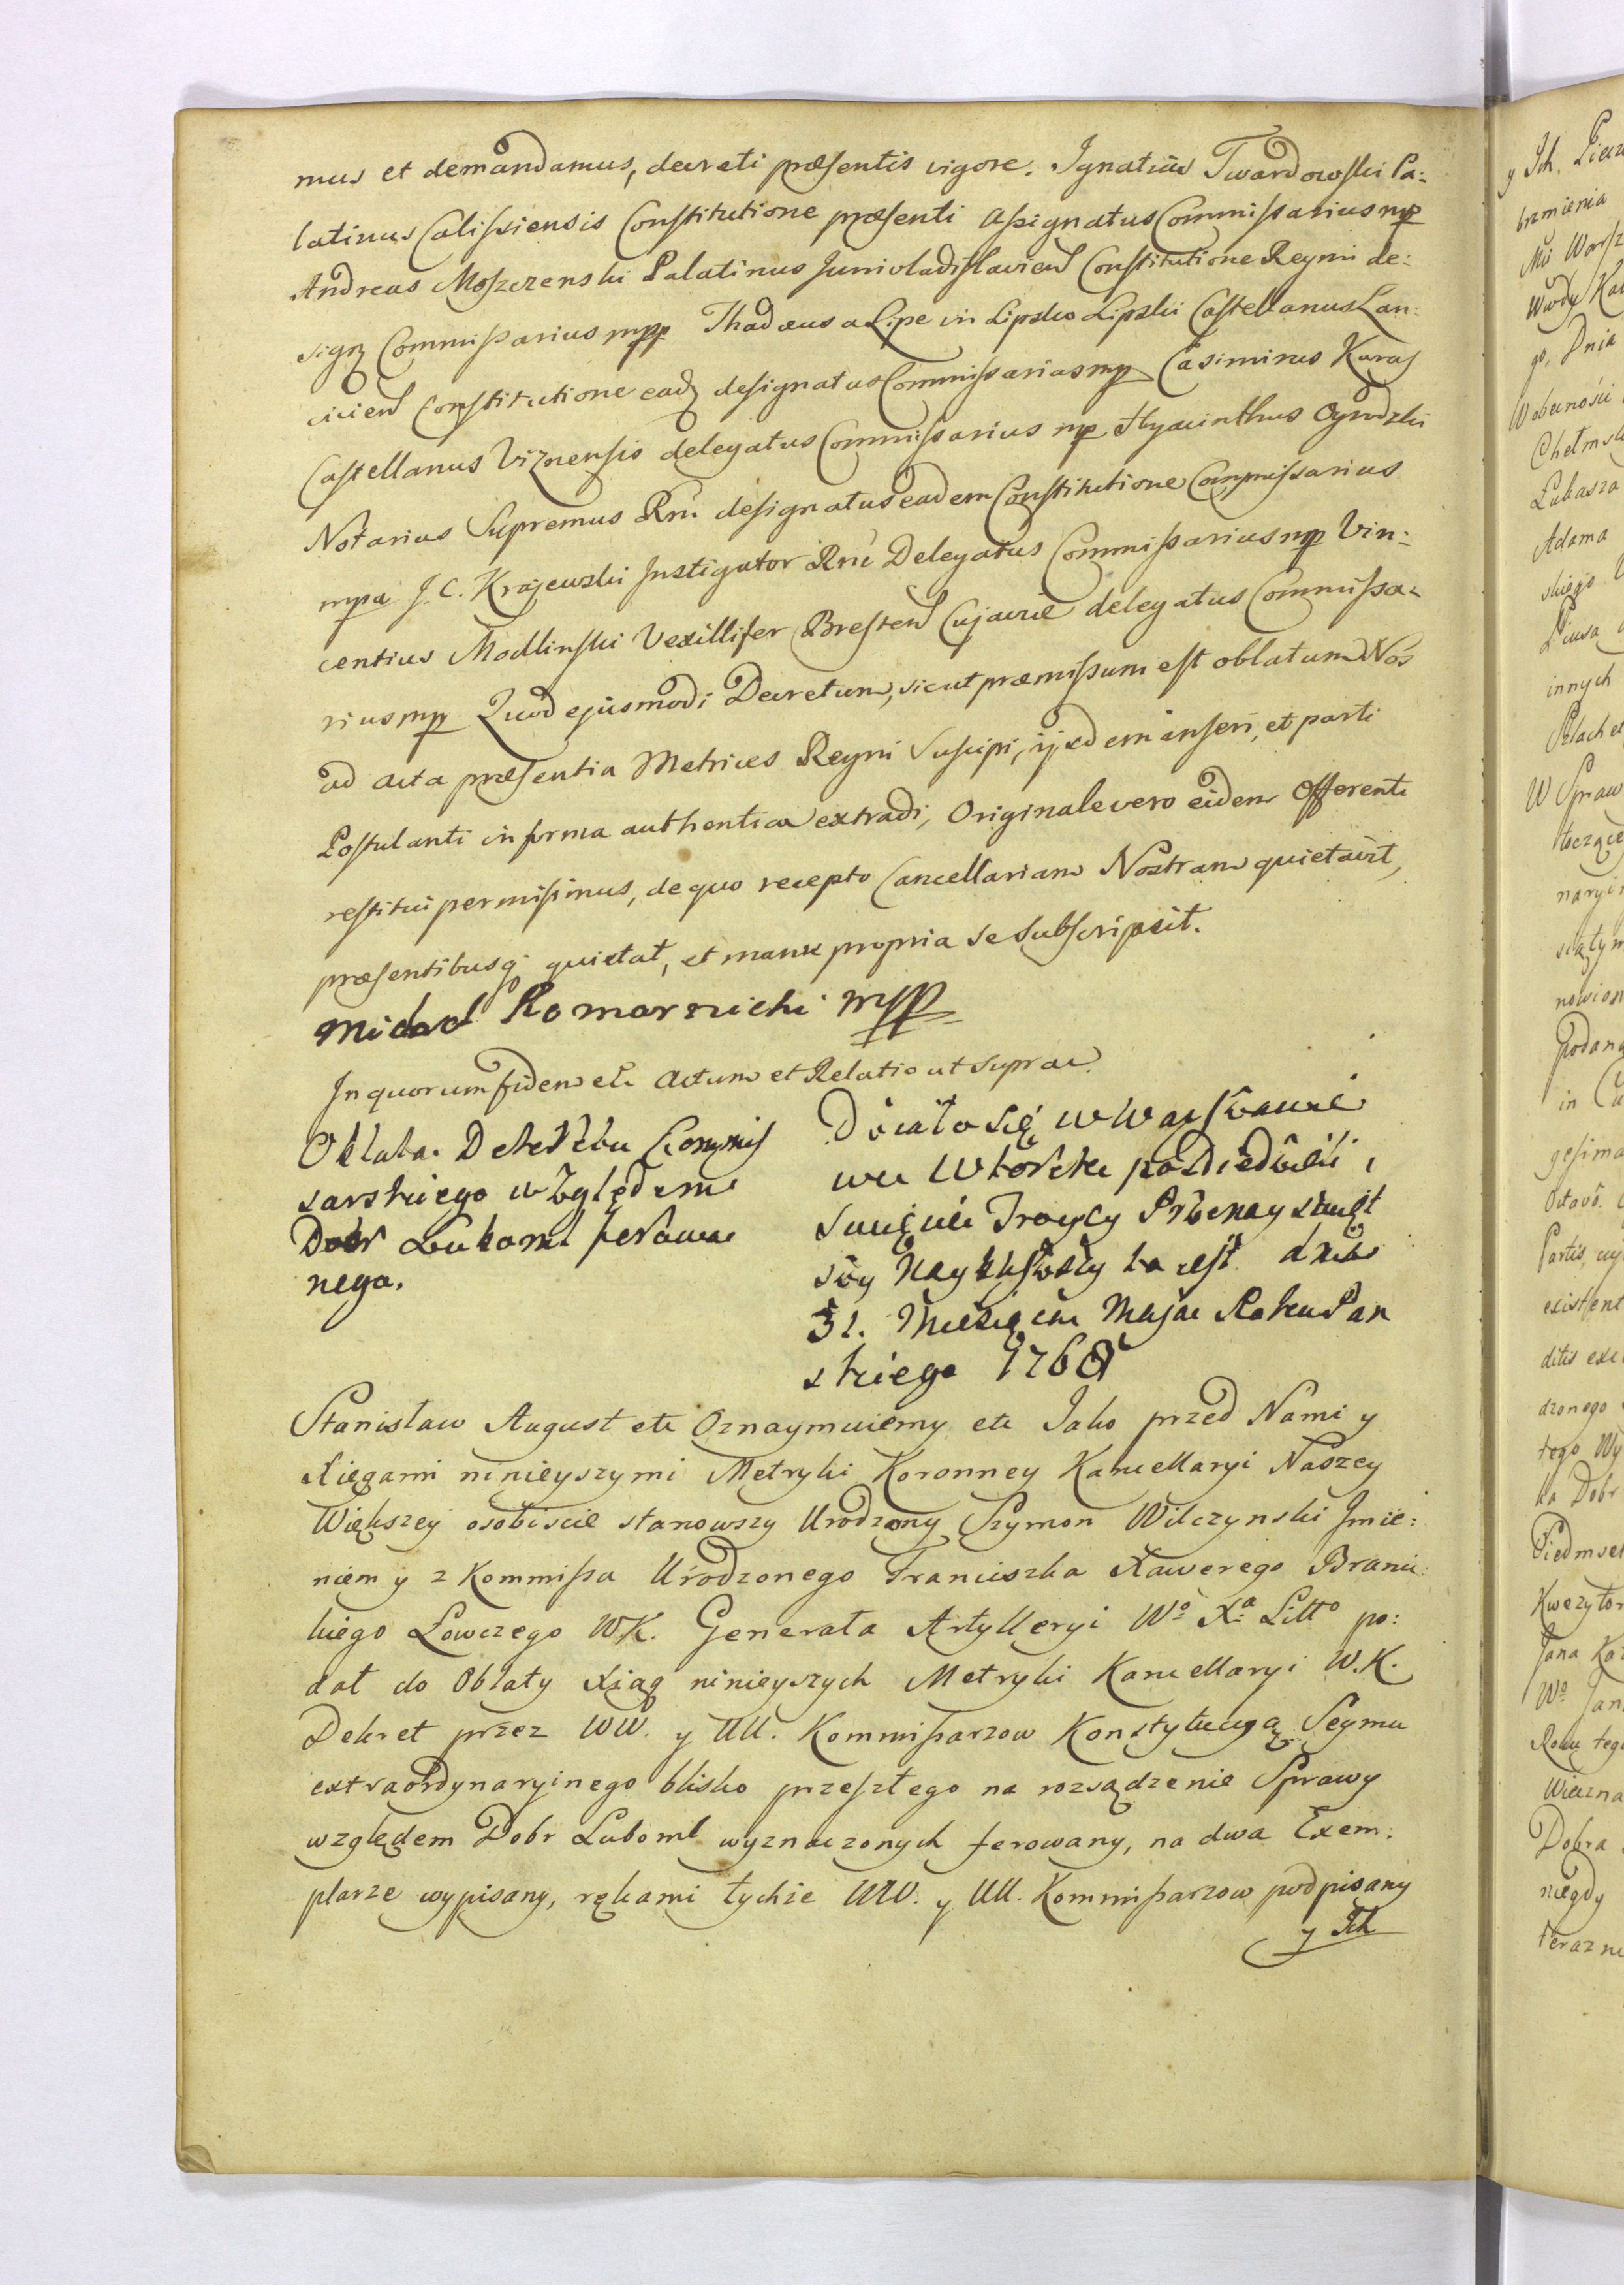 mus et demandamus, decreti præsentis vigore. Ignatius Twardowski Pa:
latinus Calissiensis Constitutione præsenti assignatus Commissarius mp
Andreas Moszczenski Palatinus Junivladislavien Constitutione Regni de:
sign Commissarius mpp. Thadæus a Lipe in Lipsko Lipski Castellanus Lan:
cicien Constitutione ead designatus Commissarius mp Casimirus Karaś
Castellanus Viznensis delegatus Commissarius mp Hyacinthus Ogrodzki
Notarius Supremus Rni designatus eadem Constitutione Commissarius
mpa J. C. Krajewski Instigator Rni Delegatus Commissarius mp Vin:
centius Modlinski Vexillifer Bresten Cujaviæ delegatus Commissa:
rius mp Quod ejusmodi Decretum, sicut præmissum est oblatum Nos
ad acta præsentia Metrices Regni Suscipi, ijsdem inseri, et parti
Postulanti in forma authentica extradi, Originale vero eidem Offerenti
restitui permisimus, de quo recepto Cancellariam Nostram quietavit,
præsentibusq quietat, et manu propria se subscripsit.
Michael Komarnicki mpp
In quorum fidem etc Actum et Relatio ut supra.
Oblata. Dekretu Kommis
sarskiego względem
Dobr Luboml ferowa
nego.
Działo się w Warszawie
we Wtorek po Niedzieli
Swięcie Troycy Przenayswięt
szy Nayblizszy to iest dnia
31. Miesiąca Maja Roku Pan
skiego 1768
Stanisław August etc Oznaymuiemy etc Jako przed Nami y
Xięgami ninieyszymi Metryki Koronney Kancellaryi Naszey
Większey osobiscie stanowszy Urodzony Szymon Wilczynski Jmie:
niem y z Kommissa Urodzonego Franciszka Xawerego Branic:
kiego Łowczego WK. Generała Artylleryi Wo Xa Litto po:
dał do Oblaty Xiąg ninieyszych Metryki Kancellaryi W.K.
Dekret przez WW. y UU. Kommissarzow Konstytucyą Seymu
extraordynaryinego blisko przeszłego na rozsądzenie Sprawy
względem Dobr Luboml wyznaczonych ferowany, na dwa Exem:
plarze wypisany, rękami tychże WW. y UU. Kommissarzow podpisany
y Ich
y Ich. Piecz
brzmienia
Mu Warsz
Wwdy Kal
go, Dnia
W obecności
Chełmsk
Łukasza
Adama
skiego
Piusa
innych
Szlachet
W Spraw
toczące
Podana
in
gesima
Octavo.
Partis,
existent
ditis exe
dzonego
tego Wy
ka Dobr
Siedmset
Kwerytor
Jana Ka
Wo Jan
Roku tego
Wieczna
Dobra
niegdy
teraz ni